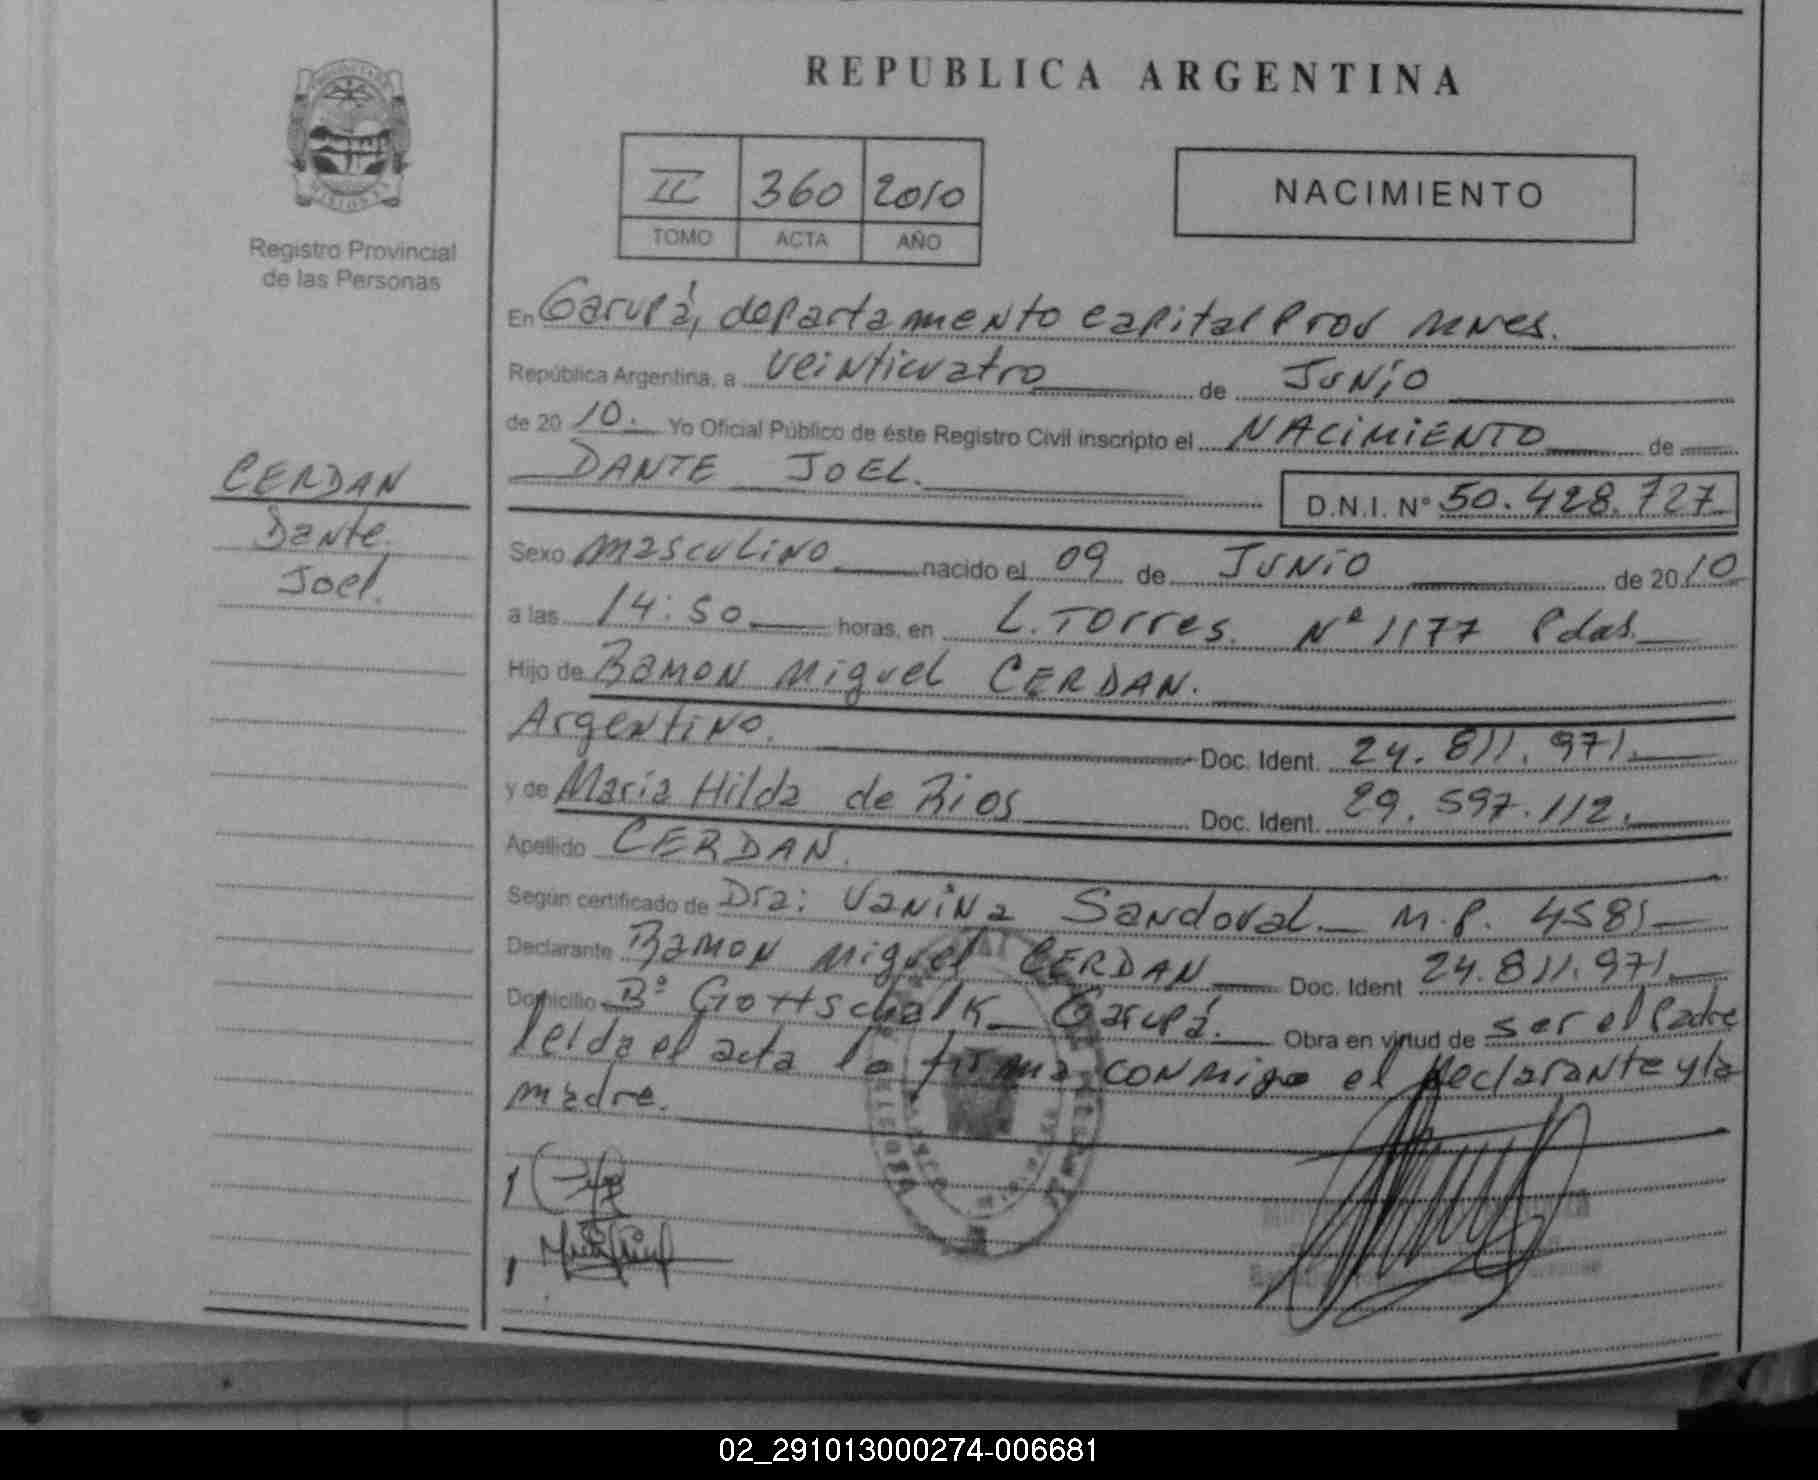 REPUBLICA ARGENTINA
II 360 2010
TOMO ACTA AÑO
NACIMIENTO
Registro Provincial
de las Personas
CERDAN
Dante
Joel.
En Garupá, departamento capital Prov Mnes.
República Argentina, a veinticuatro de Junio
de 2010. Yo Oficial Público de éste Registro Civil inscripto el NACIMIENTO de
DANTE JOEL.
D.N.I. N° 50.428.727
Sexo masculino nacido el 09 de Junio de 2010
a las 14:50 horas, en L. Torres. Nº 1177 Pdas.
Hijo de Ramon Miguel CERDAN.
Argentino. Doc. Ident. 24.811.971.
y de Maria Hilda de Rios Doc. Ident. 29.597.112.
Apellido CERDAN.
Según certificado de Dra: Vanina Sandoval. M.P. 4581
Declarante Ramon Miguel CERDAN Doc. Ident 24.811.971.
Domicilio Bº Gottschalk Garupá. Obra en virtud de ser el Padre
leida el acta la firma conmigo el declarante y la
madre.
02_291013000274-006681